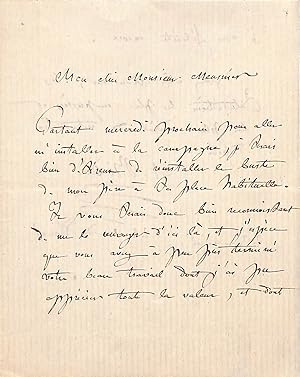 Mon cher Monsieur Meusnier
Partant mercredi prochain pour aller
m'installer à la campagne, je serais
bien désireux de réinstaller le buste
de mon père à sa place habituelle.
Je vous serais donc bien reconnaissant
de me le renvoyer d'ici là, et j'espère
que vous avez à peu près terminé
votre beau travail dont j'ai pu
apprécier toute la valeur, et dont